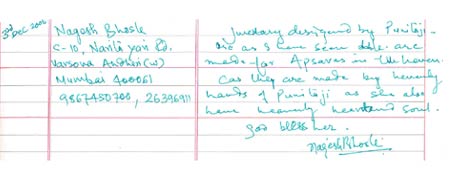 3rd DEC 2006
Nagesh Bhosle
C-10, Nariti yari Rd.
Varsova Andheri (W)
Mumbai 400061
9867450700, 26396911
Jwelary designed by Punitaji
as I have seen are
made for Apsaras in the heaven.
Cas they are made by heavenly
hands of Punitaji as she also
have heavenly heart and soul.
God bless her.
Nagesh Bhosle